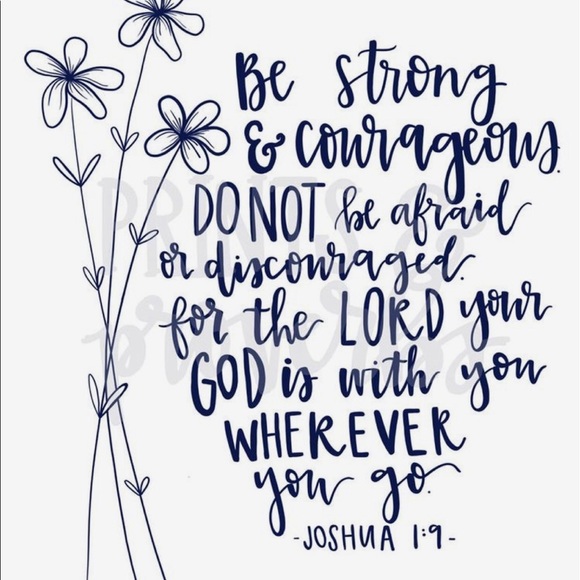 Be strong
& courageous.
DO NOT be afraid
or discouraged.
for the LORD your
GOD is with you
WHEREVER
you go.
-JOSHUA 1:9-
PRINTS &
proverbs